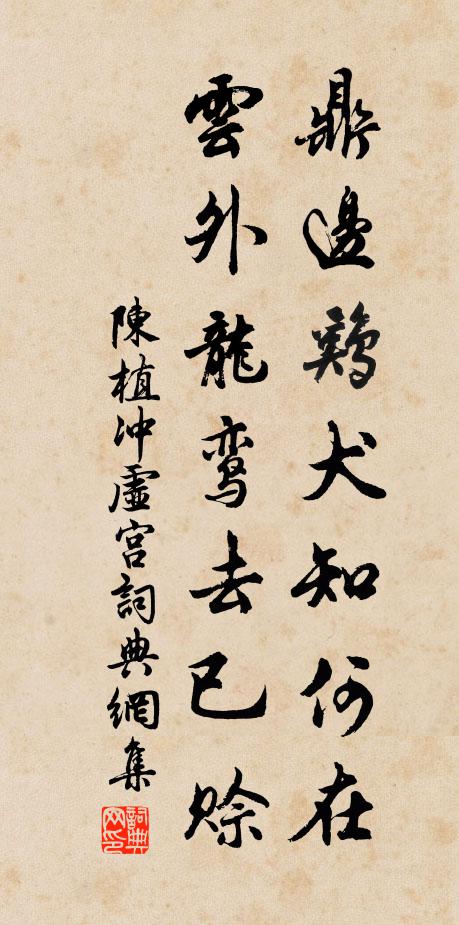 鼎邊鷄犬知何在
雲外龍鸾去已賒
陳植冲虛宮詞典網集
詞典网印